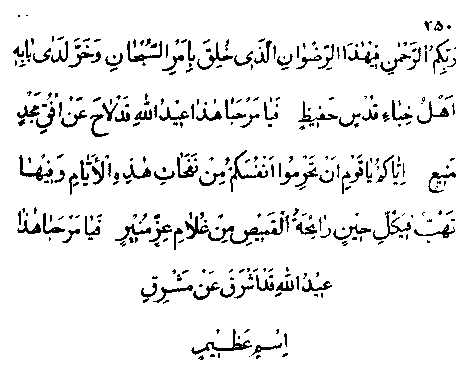 ٢٥٠
رَبِّكُمُ الرَّحْمٰنِ فِيهٰذَا الرِّضْوَانِ الَّذِي خُلِقَ بِأَمْرِ السُّبْحَانِ وَخَرَّ لَدٰى بَابِهِ
اَهْلُ خِبَاءِ قُدْسٍ حَفِيظٍ فَيَا مَرْحَبَا هٰذَا عِيدُ اللهِ قَدْ لَاحَ عَنْ اُفُقِ مَجْدٍ
مَنِيعٍ اِيَّاكُمْ يَا قَوْمِ اَنْ تَحْرِمُوا اَنْفُسَكُمْ مِنْ نَفَحَاتِ هٰذِهِ الْاَيَّامِ وَفِيهَا
تَهُبُّ فِيكُلِّ حِينٍ رَائِحَةُ الْقَمِيصِ مِنْ غُلَامِ عِزٍّ مُنِيرٍ فَيَا مَرْحَبَا هٰذَا
عِيدُ اللهِ قَدْ اَشْرَقَ عَنْ مَشْرِقِ
اِسْمٍ عَظِيمٍ